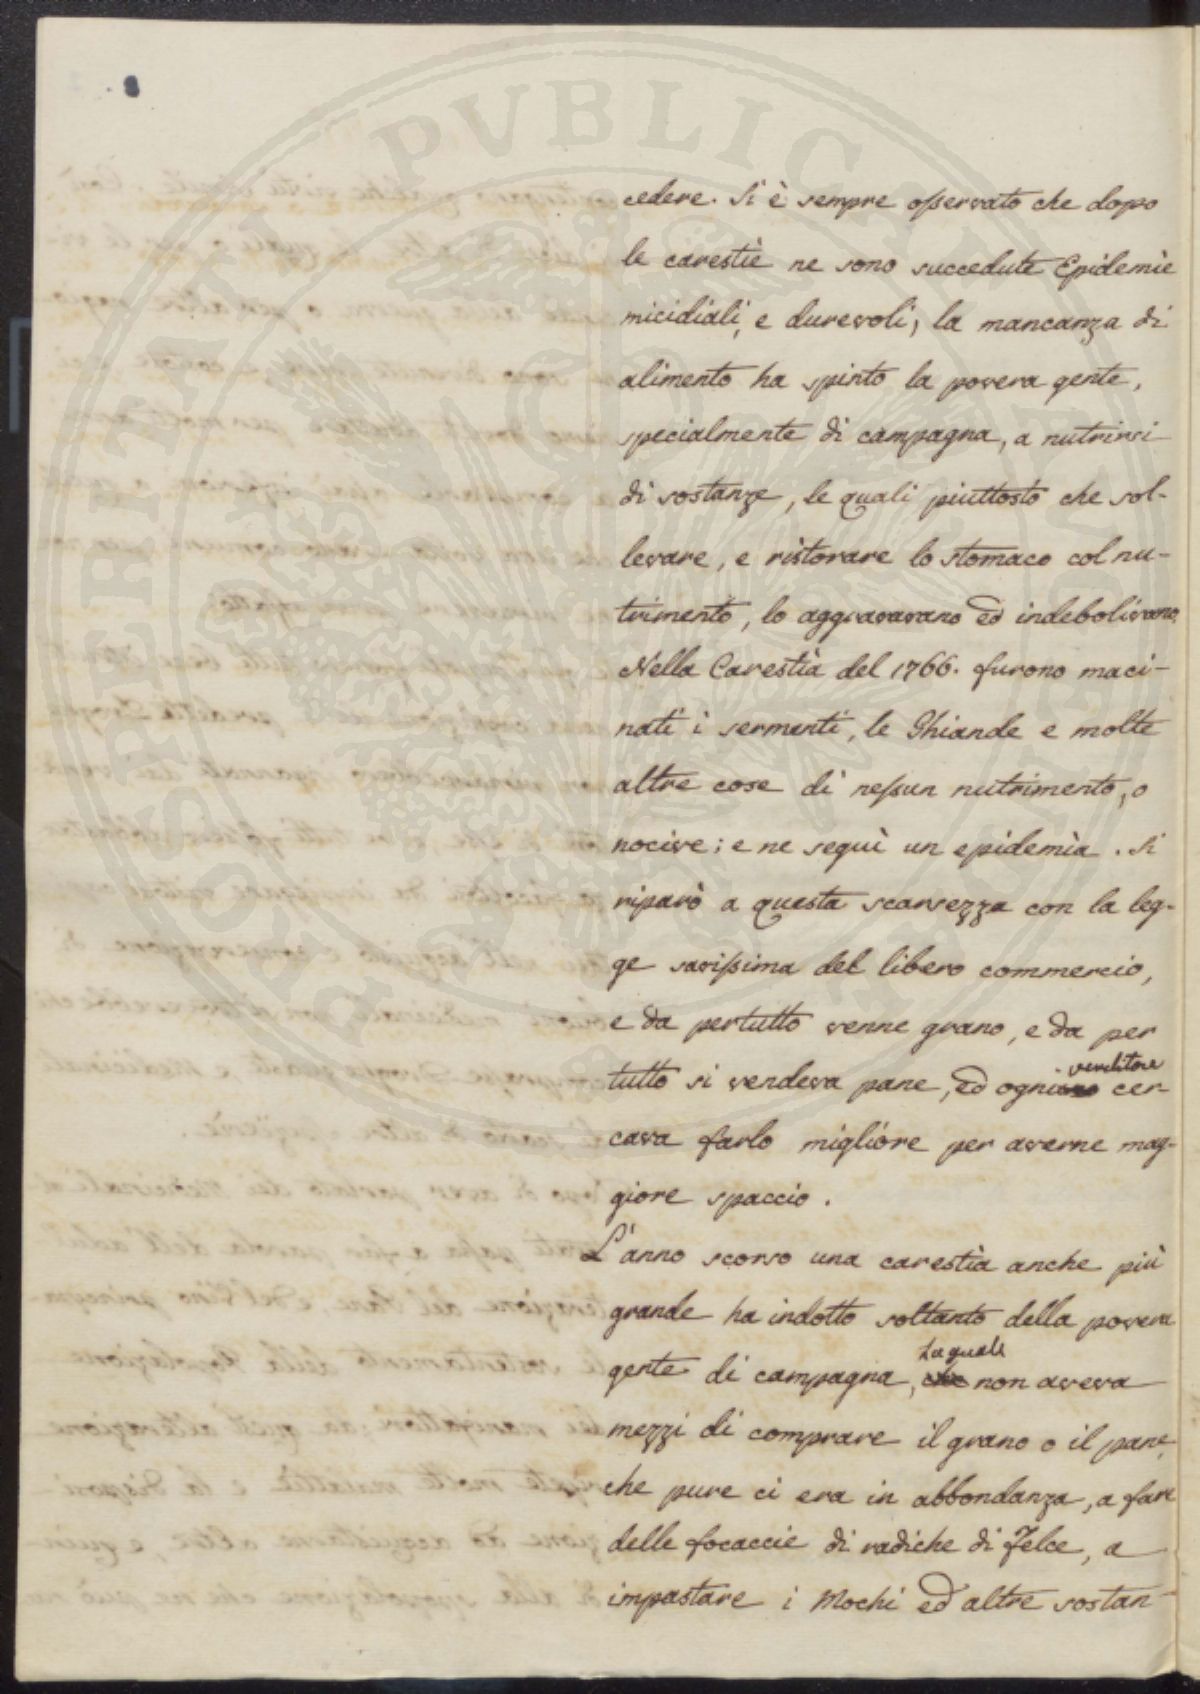 cedere. Si è sempre osservato che dopo
le carestìe ne sono succedute Epidemìe
micidiali, e durevoli; la mancanza di
alimento ha spinto la povera gente,
specialmente di campagna, a nutrirsi
di sostanze, le quali piuttosto che sol-
levare, e ristorare lo stomaco col nu-
trimento, lo aggravavano ed indebolivano.
Nella Carestìa del 1766. furono maci-
nati i sermenti, le Ghiande e molte
altre cose di nessun nutrimento, o
nocive; e ne seguì un epidemìa. Si
riparò a questa scarsezza con la leg-
ge savissima del libero commercio,
e da pertutto venne grano, e da per
tutto si vendeva pane, ed ogni venditore cer-
cava farlo migliore per averne mag-
giore spaccio.
L'anno scorso una carestìa anche più
grande ha indotto soltanto della povera
gente di campagna, la quale non aveva
mezzi di comprare il grano o il pane,
che pure ci era in abbondanza, a fare
delle focaccie di radiche di Felce, a
impastare i Mochi ed altre sostan-
PROSPERITATI PUBLICAE AUGENDAE